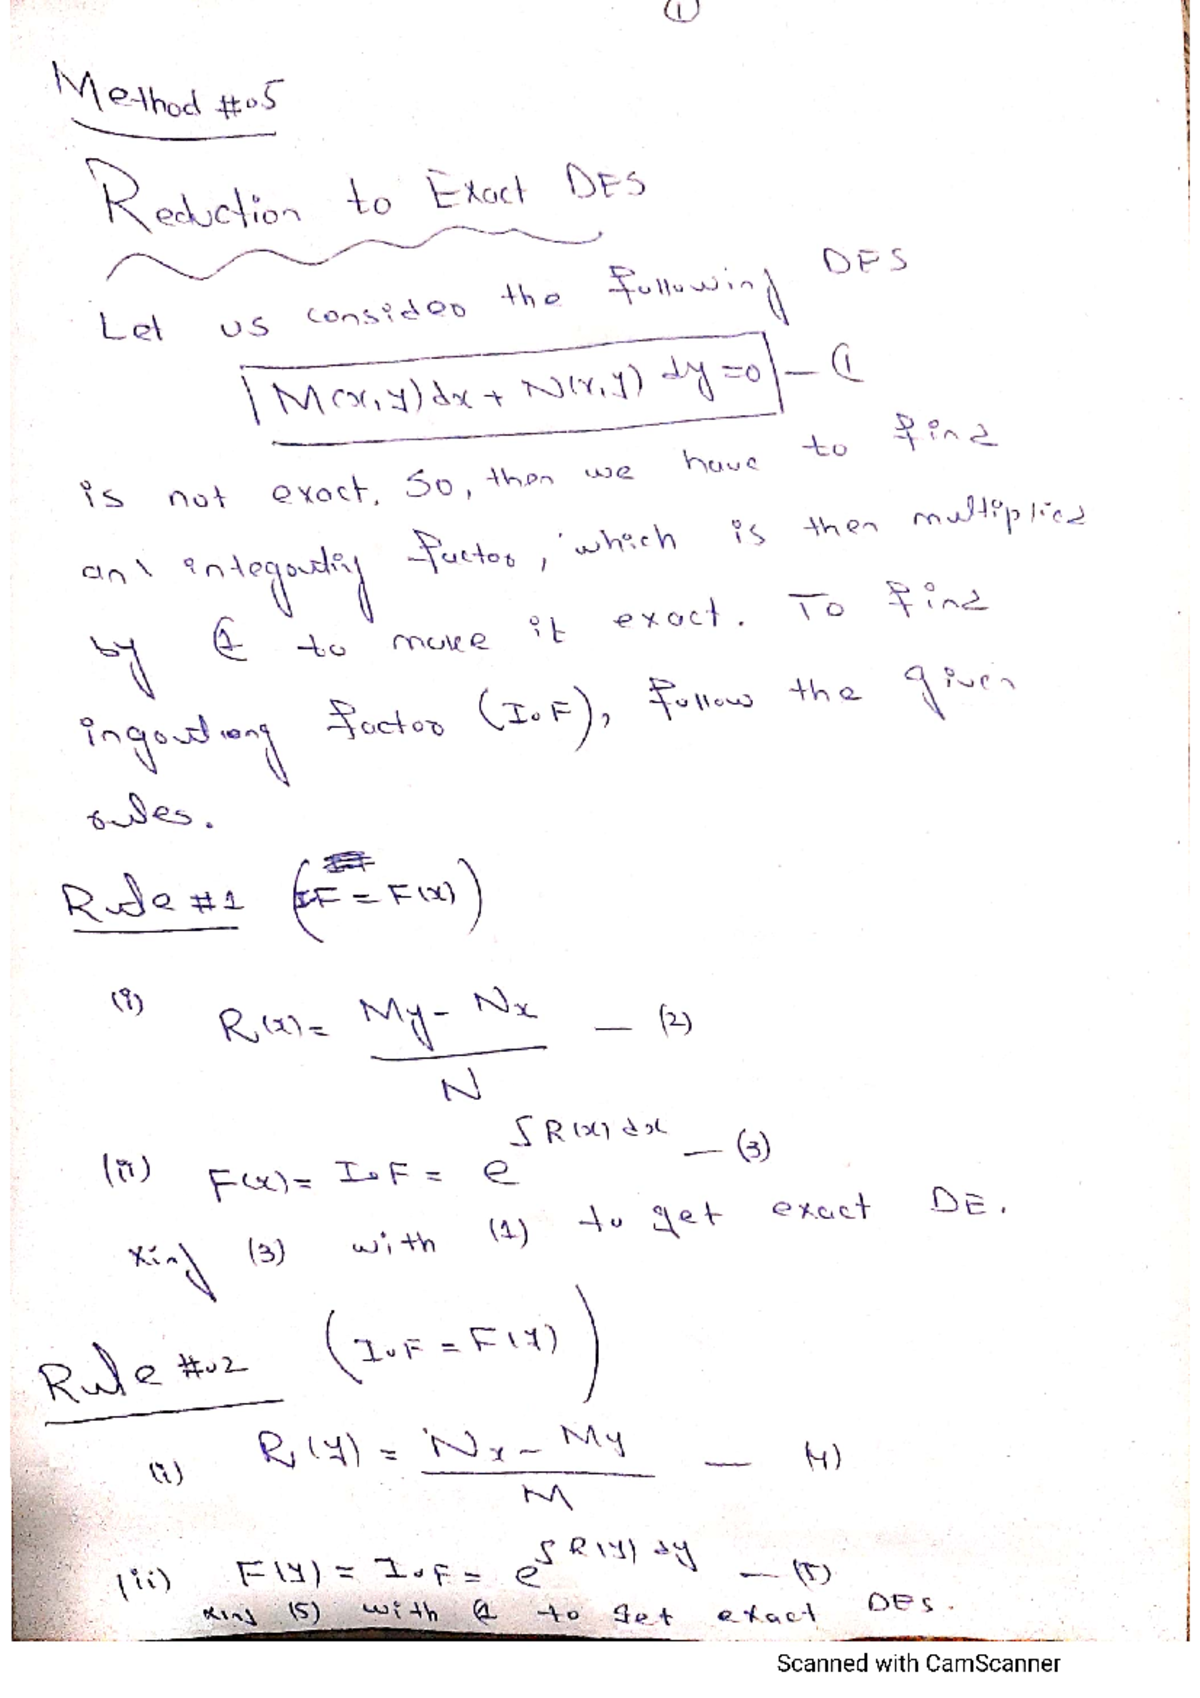 1
Method #05
Reduction to Exact DES
Let us consider the following DES
M(x,y)dx + N(x,y) dy =0 — (1
is not exact. So, then we have to find
an integrating factor, which is then multiplied
by (1 to make it exact. To find
factor (I.F), follow the given
rules.
Rule #1 (IF = F(x))
(i) R(x) = My - Nx / N — (2)
(ii) F(x) = I.F = e^∫R(x) dx — (3)
Xing (3) with (1) to get exact DE.
Rule #02 (I.F = F(y))
(i) R(y) = Nx - My / M — (4)
(ii) F(y) = I.F = e^∫R(y) dy — (5)
xing (5) with (1 to get exact DEs.
Scanned with CamScanner